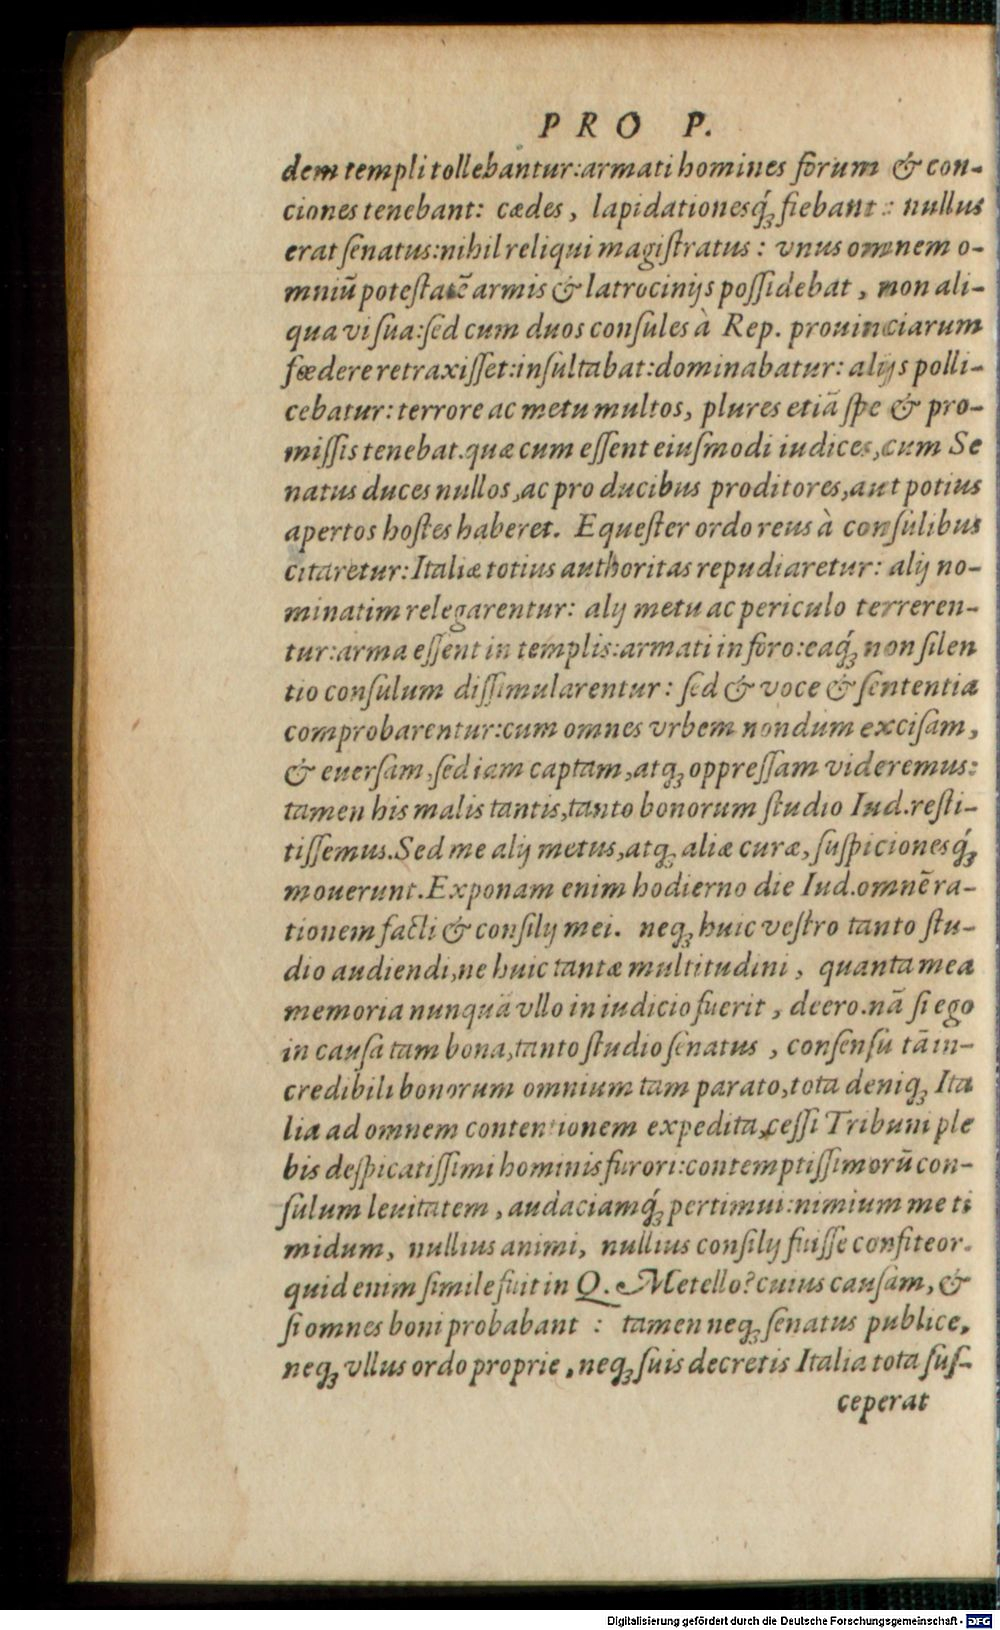 PRO P.
dem templi tollebantur: armati homines forum & con-
ciones tenebant: cædes, lapidationesq́ꝫ fiebant: nullus
erat ſenatus: nihil reliqui magiſtratus: vnus omnem o-
mniũ poteſtatẽ armis & latrocinijs poſſidebat, non ali-
qua vi ſua: ſed cum duos conſules à Rep. prouinciarum
fœdere retraxiſſet: inſultabat: dominabatur: alijs polli-
cebatur: terrore ac metu multos, plures etiã ſpe & pro-
miſſis tenebat. quæ cum eſſent eiuſmodi iudices, cum Se
natus duces nullos, ac pro ducibus proditores, aut potius
apertos hoſtes haberet. Equeſter ordo reus à conſulibus
citaretur: Italiæ totius authoritas repudiaretur: alij no-
minatim relegarentur: alij metu ac periculo terreren-
tur: arma eſſent in templis: armati in foro: eaq́ꝫ non ſilen
tio conſulum diſſimularentur: ſed & voce & ſententia
comprobarentur: cum omnes vrbem nondum exciſam,
& euerſam, ſed iam captam, atqꝫ oppreſſam videremus:
tamen his malis tantis, tanto bonorum ſtudio Iud. reſti-
tiſſemus. Sed me alij metus, atqꝫ aliæ curæ, ſuſpicionesq́ꝫ
mouerunt. Exponam enim hodierno die Iud. omnẽ ra-
tionem facti & conſilij mei. neqꝫ huic veſtro tanto ſtu-
dio audiendi, ne huic tantæ multitudini, quanta mea
memoria nunquã vllo in iudicio fuerit, deero. nã ſi ego
in cauſa tam bona, tanto ſtudio ſenatus, conſenſu tã in-
credibili bonorum omnium tam parato, tota deniqꝫ Ita
lia ad omnem contentionem expedita, ceſſi Tribuni ple
bis deſpicatiſſimi hominis furori: contemptiſſimorũ con-
ſulum leuitatem, audaciamq́ꝫ pertimui: nimium me ti
midum, nullius animi, nullius conſilij fuiſſe confiteor.
quid enim ſimile fuit in Q. Metello? cuius cauſam, &
ſi omnes boni probabant : tamen neqꝫ ſenatus publice,
neqꝫ vllus ordo proprie, neqꝫ ſuis decretis Italia tota ſuſ-
ceperat
Digitalisierung gefördert durch die Deutsche Forschungsgemeinschaft - DFG